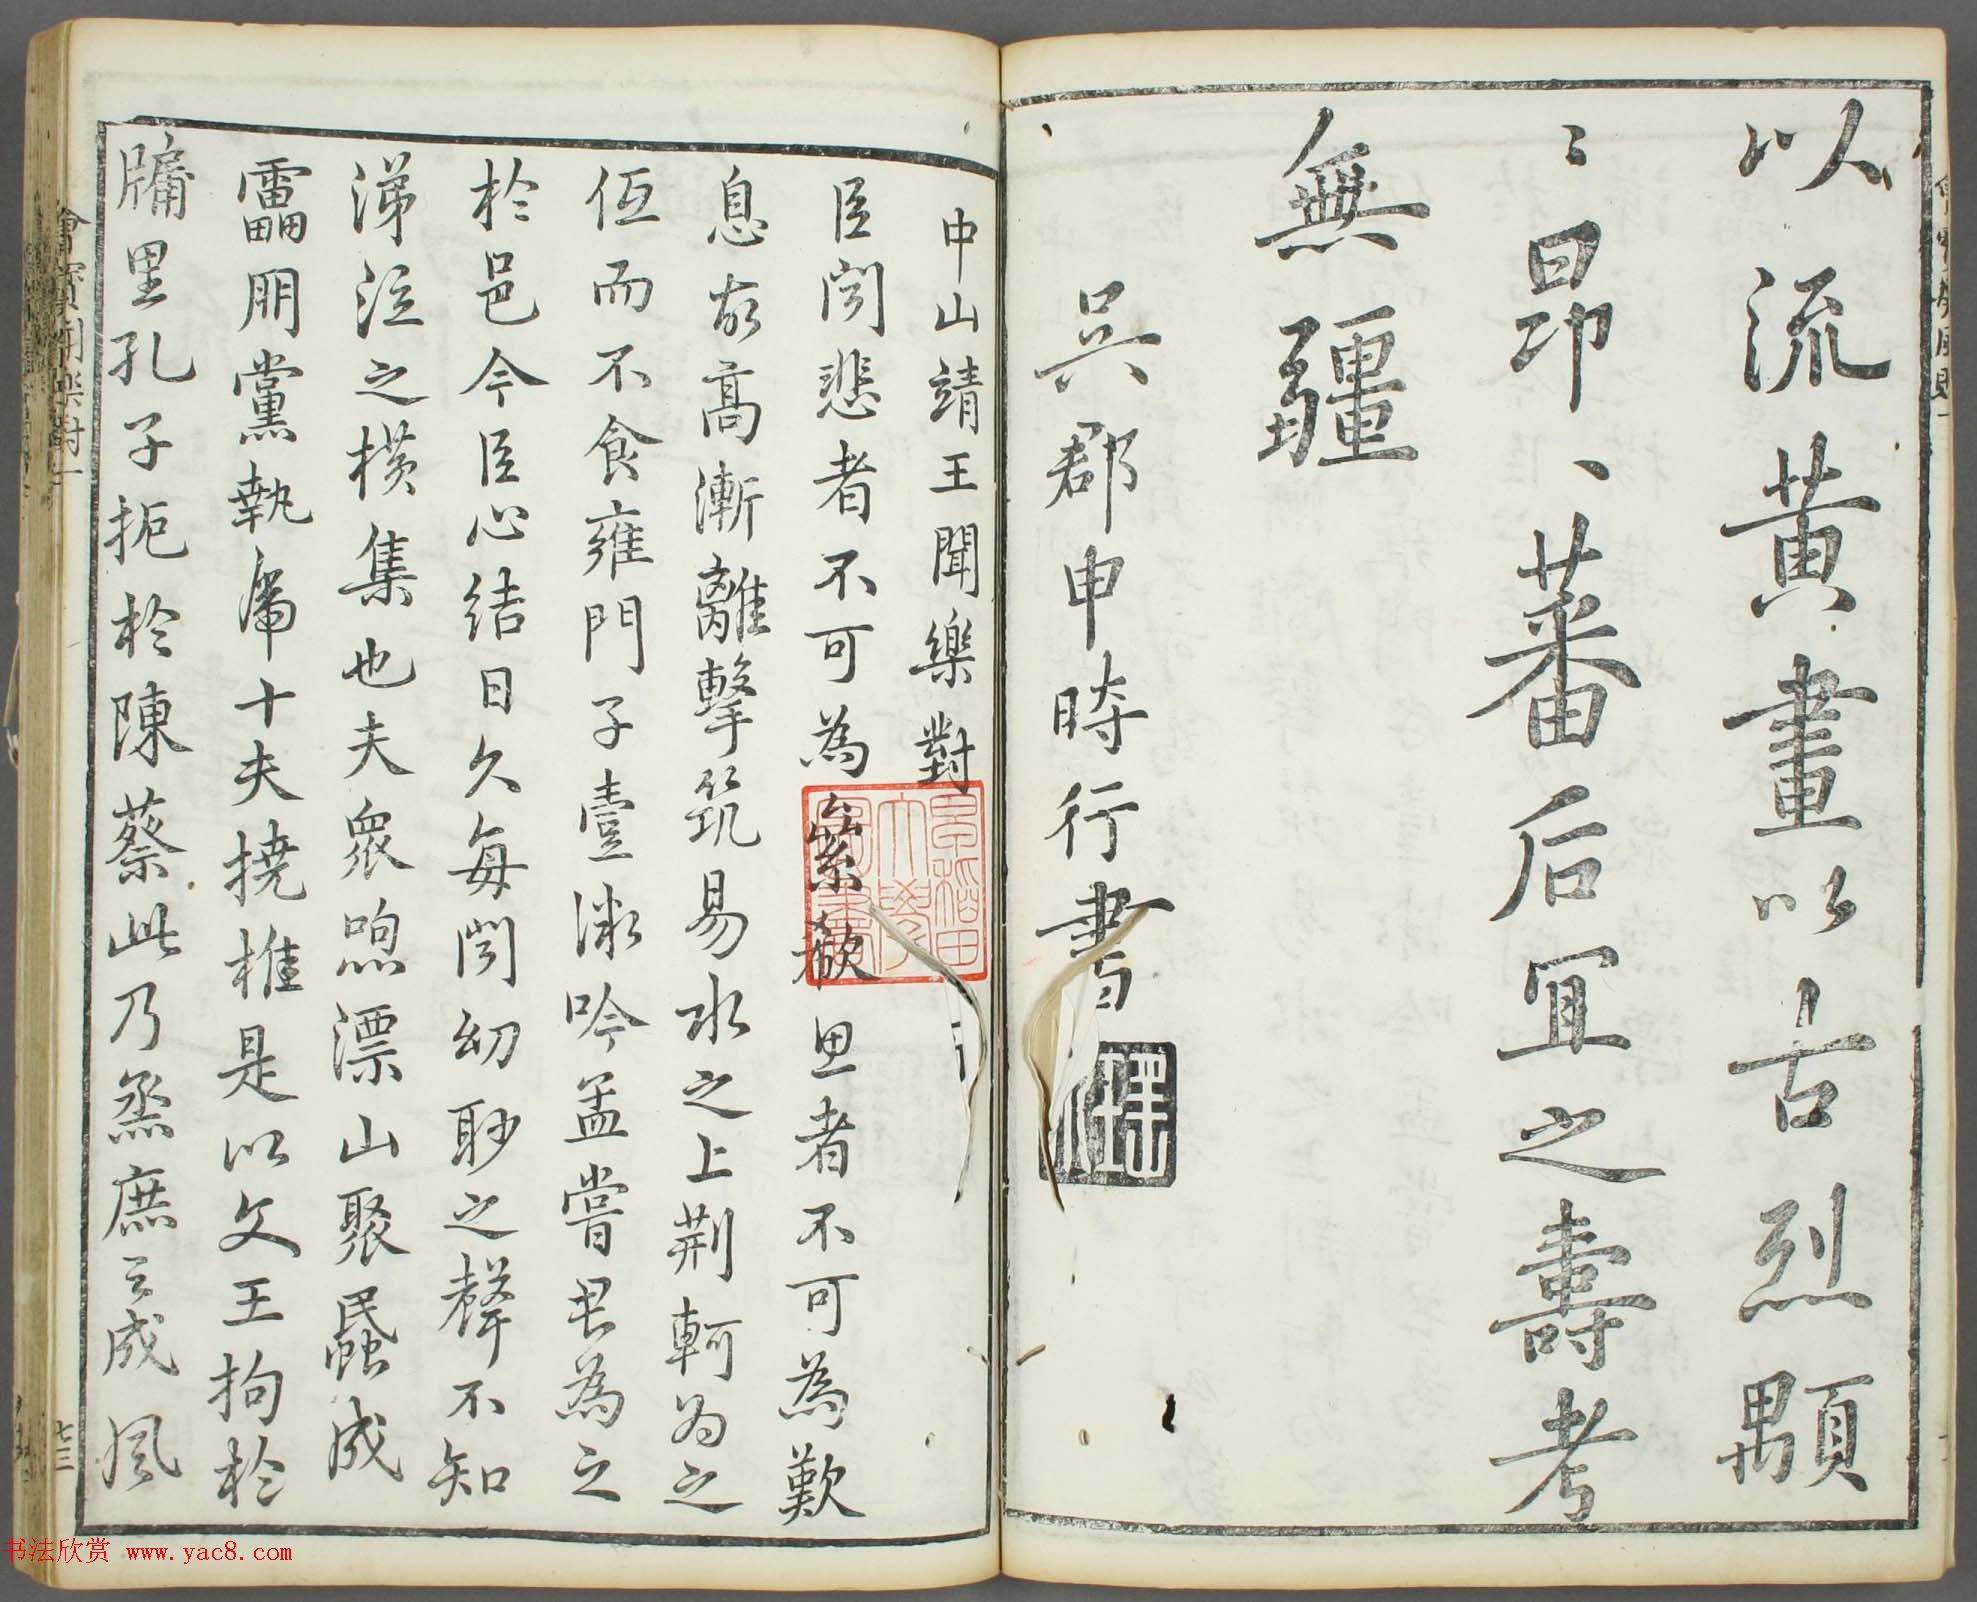 以流黄畫以古烈顒
〻昂、蕃后宜之壽考
無疆
吳郡申時行書
中山靖王聞樂對
臣聞悲者不可為絫欷思者不可為歎
息故高漸離擊筑易水之上荆軻为之
低而不食雍門子壹微吟孟嘗君為之
於邑今臣心结日久每聞幼眇之聲不知
涕泣之橫集也夫衆喣漂山聚蟁成
靁朋黨執虎十夫撓椎是以文王拘於
牖里孔子扼於陳蔡此乃烝庶之成风
七三
早稻田大學圖書
书法欣赏 www.yac8.com